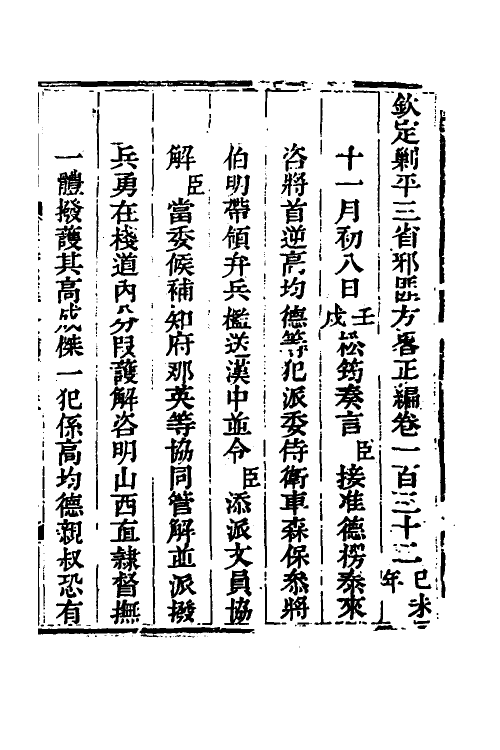 欽定剿平三省邪匪方畧正編卷一百三十二己未年
十一月初八日壬戌松筠奏言臣接准德楞泰來
咨將首逆高均德等犯派委侍衛車森保叅將
伯明帶領弁兵檻送漢中並令臣添派文員協
解臣當委候補知府那英等協同管解並派撥
兵勇在棧道內分段護解咨明山西直隸督撫
一體撥護其高成傑一犯係高均德親叔恐有